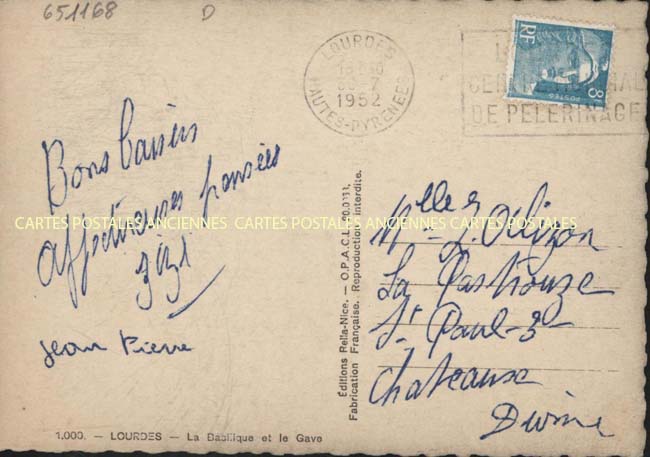 651168 D
LOURDES
1952
HAUTES-PYRENEES
DE PELERINAGE
RF
POSTES
8
Bons baisers
affectueuses pensées
Zizi
Jean Pierre
CARTES POSTALES ANCIENNES CARTES POSTALES ANCIENNES CARTES POSTALES
Éditions Rella-Nice. — O.P.A.C.I.
Fabrication Française. Reproduction interdite.
Melles
La
St Paul-3
Chateaux
Drôme
1.000. — LOURDES — La Basilique et le Gave